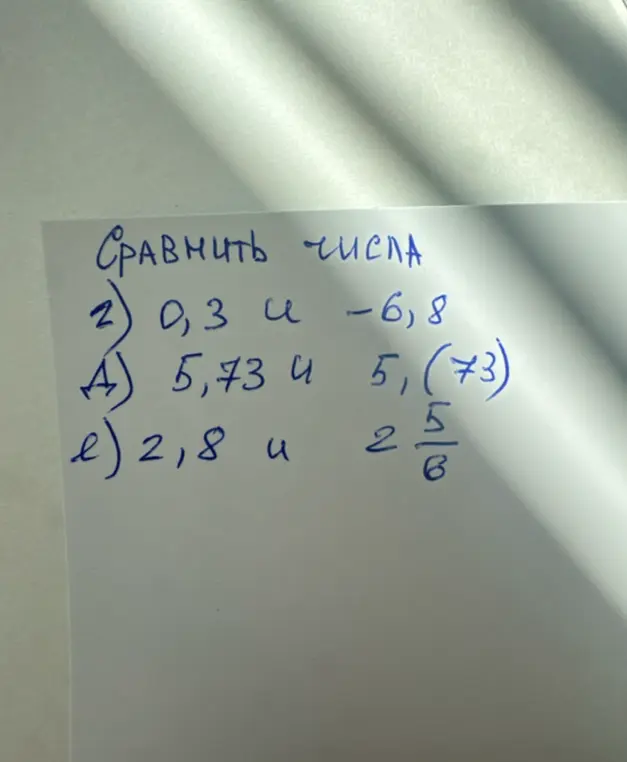 Сравнить числа
г) 0,3 и -6,8
д) 5,73 и 5,(73)
е) 2,8 и 2 5/6